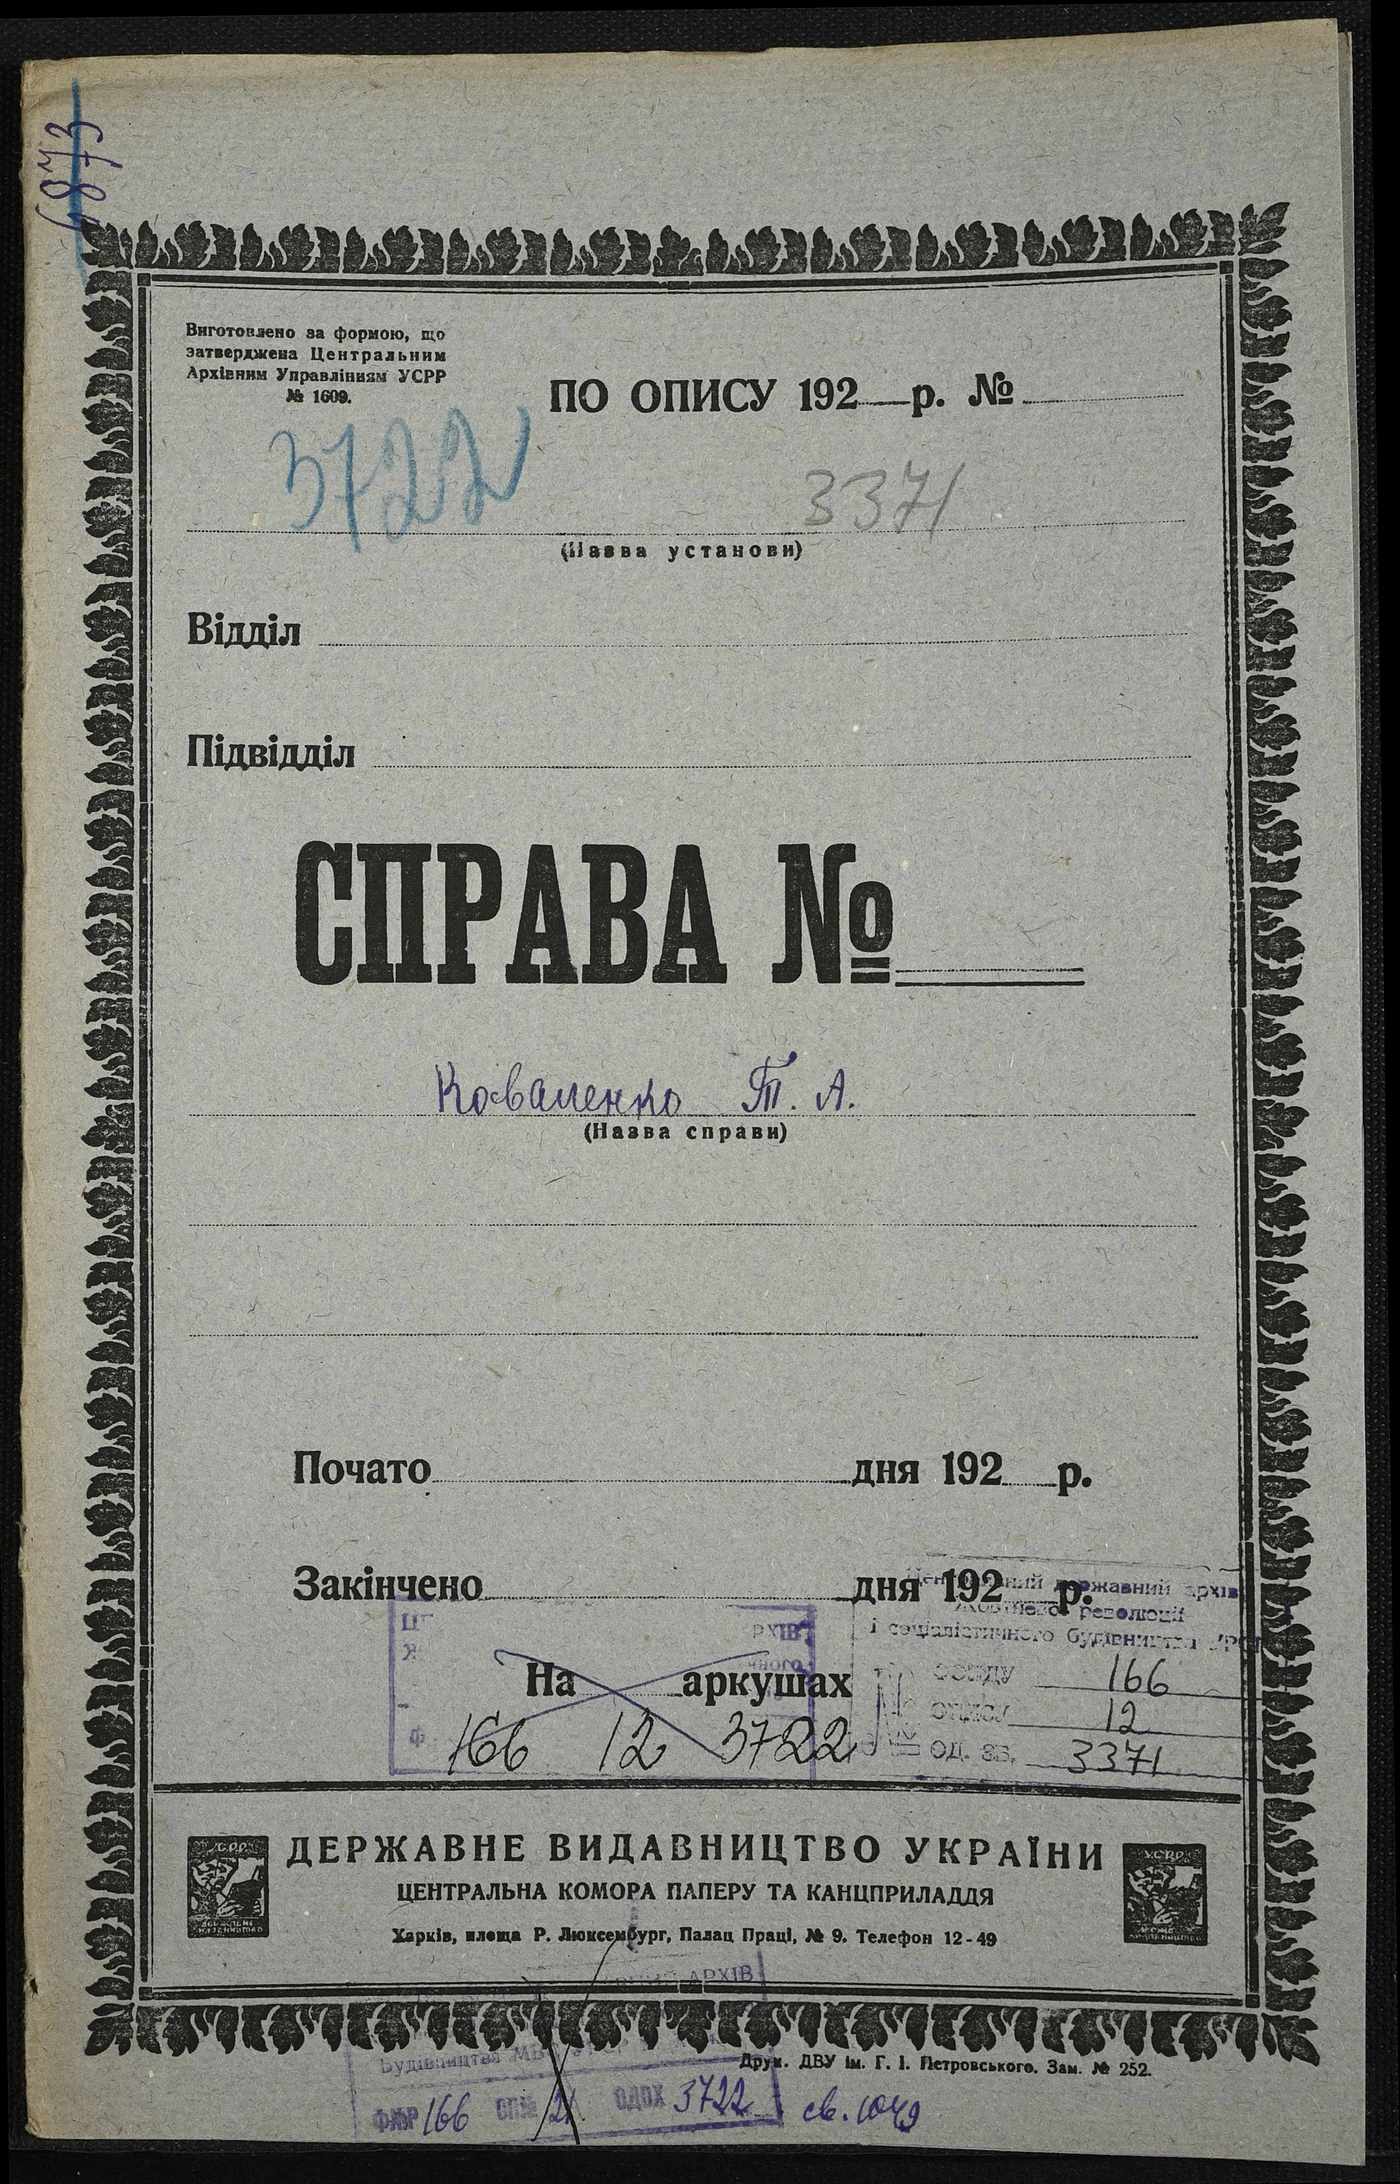 6873
Виготовлено за формою, що
затверджена Центральним
Архівним Управлінням УСРР
№ 1609.
ПО ОПИСУ 192 р. №
3722
3371
(Назва установи)
Відділ
Підвідділ
СПРАВА №
Коваленко Т. А.
(Назва справи)
Почато дня 192 р.
Закінчено дня 192 р.
Центральний державний архів
Жовтневої революції
і соціалістичного будівництва УРСР
На аркушах
№ ФОНДУ 166
№ ОПИСУ 12
№ ОД. ЗБ. 3371
166 12 3722
ДЕРЖАВНЕ ВИДАВНИЦТВО УКРАЇНИ
ЦЕНТРАЛЬНА КОМОРА ПАПЕРУ ТА КАНЦПРИЛАДДЯ
Харків, площа Р. Люксембург, Палац Праці, № 9. Телефон 12-49
УСРР
УСРР
АРХІВ
Будівництва
Друк. ДВУ ім. Г. І. Петровського. Зам. № 252.
166 3722 св. 1049